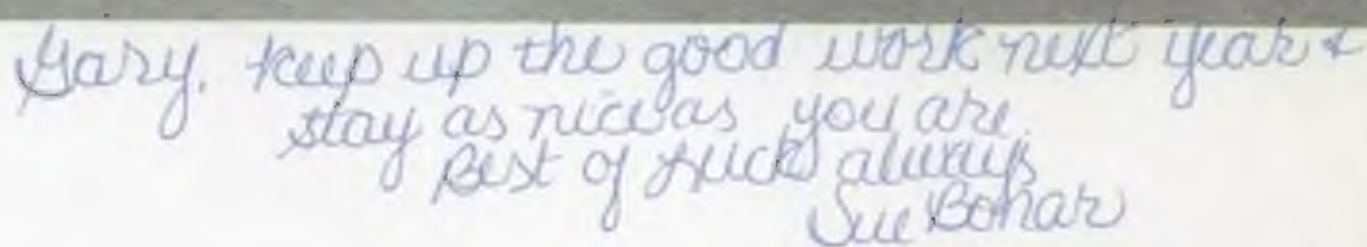 Gary, keep up the good work next year &
stay as nice as you are.
Best of luck always
Sue Bohar